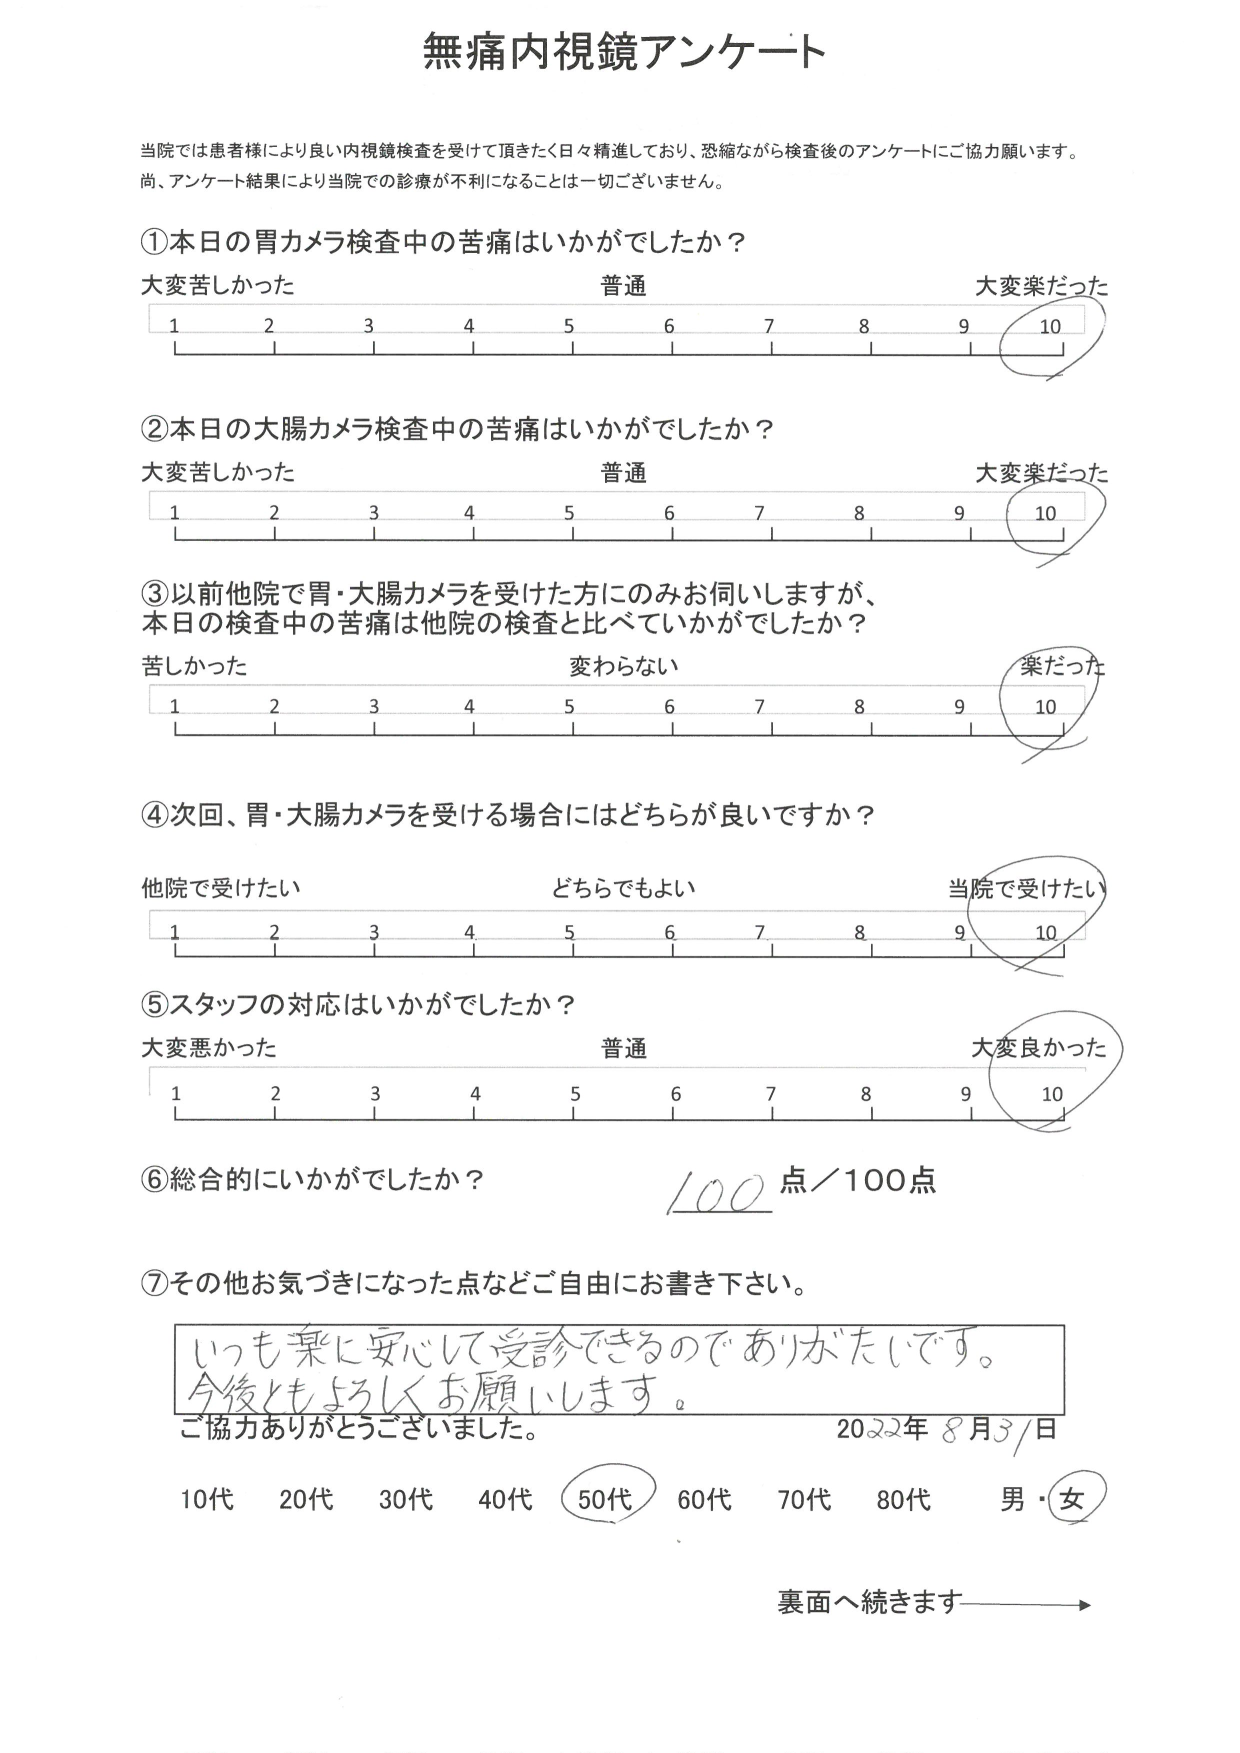 無痛内視鏡アンケート
当院では患者様により良い内視鏡検査を受けて頂きたく日々精進しており、恐縮ながら検査後のアンケートにご協力願います。
尚、アンケート結果により当院での診療が不利になることは一切ございません。
①本日の胃カメラ検査中の苦痛はいかがでしたか？
大変苦しかった 普通 大変楽だった
1 2 3 4 5 6 7 8 9 10
②本日の大腸カメラ検査中の苦痛はいかがでしたか？
大変苦しかった 普通 大変楽だった
1 2 3 4 5 6 7 8 9 10
③以前他院で胃・大腸カメラを受けた方にのみお伺いしますが、
本日の検査中の苦痛は他院の検査と比べていかがでしたか？
苦しかった 変わらない 楽だった
1 2 3 4 5 6 7 8 9 10
④次回、胃・大腸カメラを受ける場合にはどちらが良いですか？
他院で受けたい どちらでもよい 当院で受けたい
1 2 3 4 5 6 7 8 9 10
⑤スタッフの対応はいかがでしたか？
大変悪かった 普通 大変良かった
1 2 3 4 5 6 7 8 9 10
⑥総合的にいかがでしたか？ 100点／100点
⑦その他お気づきになった点などご自由にお書き下さい。
いつも楽に安心して受診できるのでありがたいです。
今後ともよろしくお願いします。
ご協力ありがとうございました。 2022年8月31日
10代 20代 30代 40代 50代 60代 70代 80代 男・女
裏面へ続きます